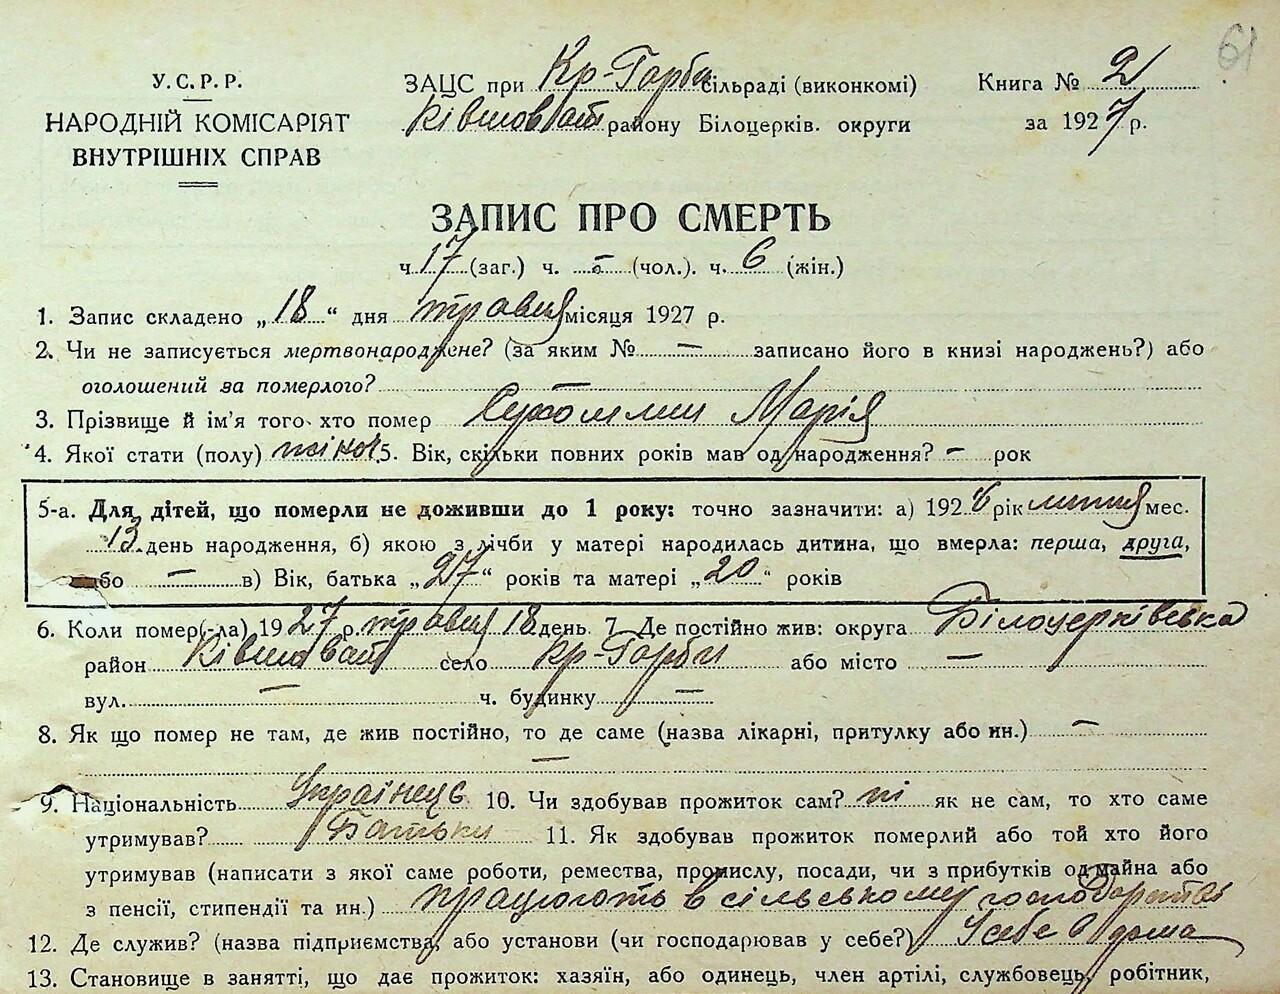 61
У.С.Р.Р.
НАРОДНІЙ КОМІСАРІЯТ
ВНУТРІШНІХ СПРАВ
ЗАЦС при Кр-Горби сільраді (виконкомі)
Ківшоват району Білоцерків. округи
Книга № 2
за 1927 р.
ЗАПИС ПРО СМЕРТЬ
ч. 17 (заг.) ч. – (чол.). ч. 6 (жін.)
1. Запис складено „18“ дня травня місяця 1927 р.
2. Чи не записується мертвонароджене? (за яким № – записано його в книзі народжень?) або
оголошений за померлого? –
3. Прізвище й ім'я того хто помер Сухомлин Марія
4. Якої стати (полу) жіноч 5. Вік, скільки повних років мав од народження? – рок
5-а. Для дітей, що померли не доживши до 1 року: точно зазначити: а) 1926 рік липня мес.
13 день народження, б) якою з лічби у матері народилась дитина, що вмерла: перша, друга,
або – в) Вік, батька „27“ років та матері „20“ років
6. Коли помер(-ла) 1927 р. травня 18 день 7. Де постійно жив: округа Білоцерківська
район Ківшоват село Кр-Горби або місто –
вул. – ч. будинку –
8. Як що помер не там, де жив постійно, то де саме (назва лікарні, притулку або ин.) –
–
9. Національність Українець 10. Чи здобував прожиток сам? ні як не сам, то хто саме
утримував? Батьки 11. Як здобував прожиток померлий або той хто його
утримував (написати з якої саме роботи, ремества, промислу, посади, чи з прибутків од майна або
з пенсії, стипендії та ин.) працюють в сільському господарстві
12. Де служив? (назва підприємства, або установи (чи господарював у себе?) У себе вдома
13. Становище в занятті, що дає прожиток: хазяїн, або одинець, член артілі, службовець, робітник,